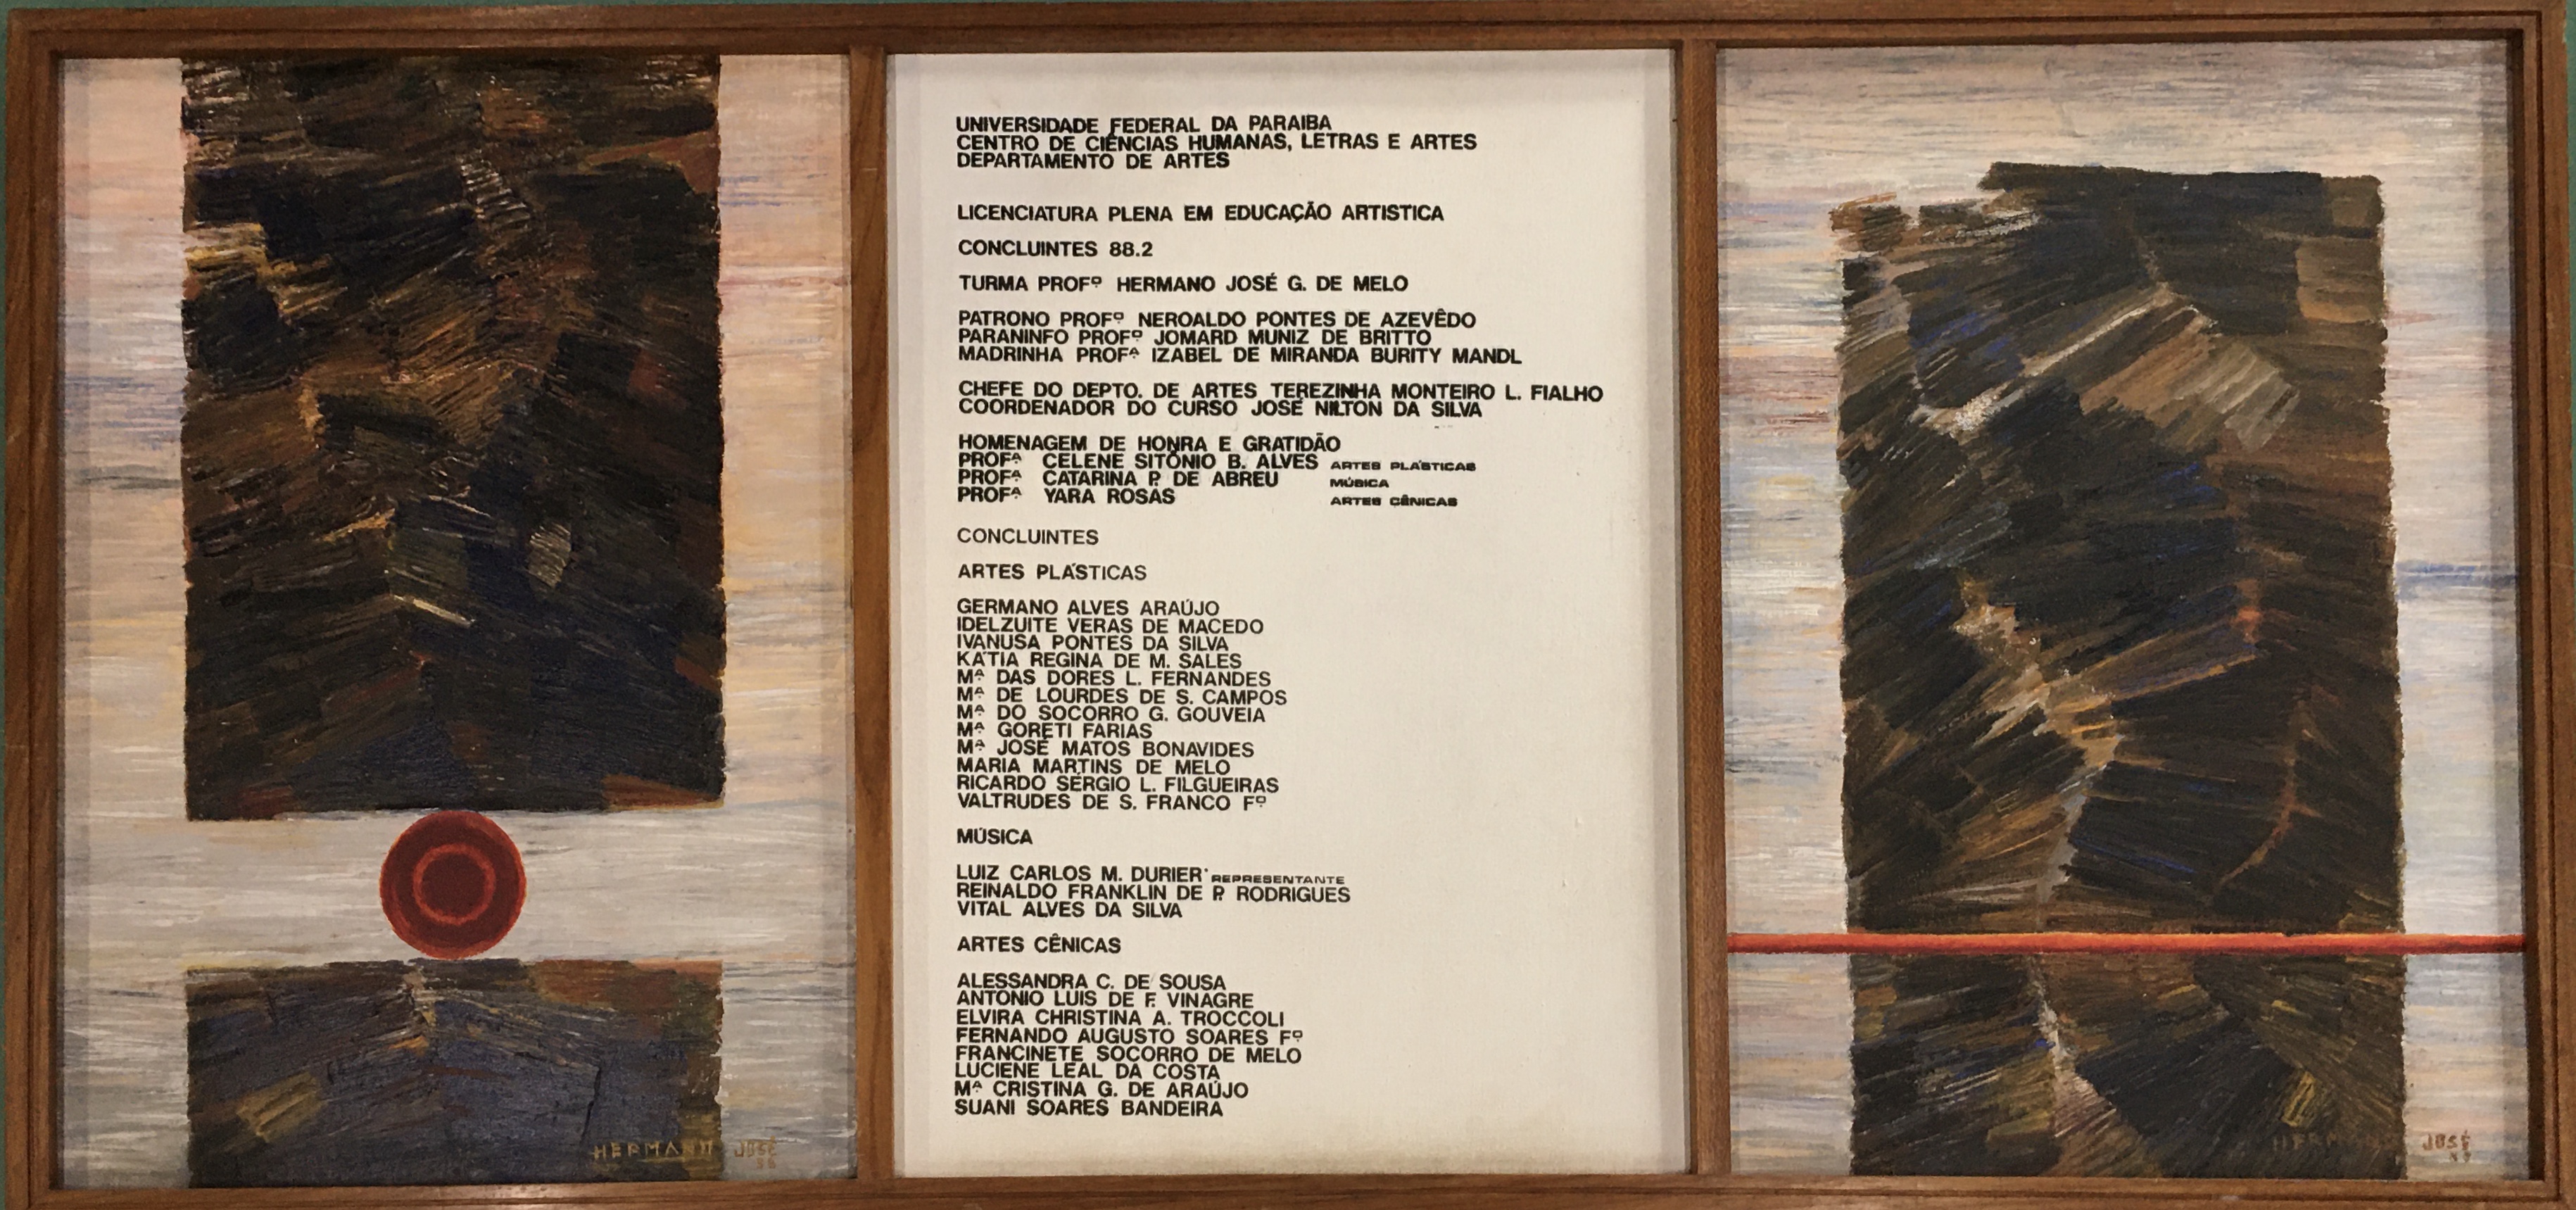 UNIVERSIDADE FEDERAL DA PARAIBA
CENTRO DE CIÊNCIAS HUMANAS, LETRAS E ARTES
DEPARTAMENTO DE ARTES
LICENCIATURA PLENA EM EDUCAÇÃO ARTISTICA
CONCLUINTES 88.2
TURMA PROFº HERMANO JOSÉ G. DE MELO
PATRONO PROFº NEROALDO PONTES DE AZEVÊDO
PARANINFO PROFº JOMARD MUNIZ DE BRITTO
MADRINHA PROFª IZABEL DE MIRANDA BURITY MANDL
CHEFE DO DEPTO. DE ARTES TEREZINHA MONTEIRO L. FIALHO
COORDENADOR DO CURSO JOSÉ NILTON DA SILVA
HOMENAGEM DE HONRA E GRATIDÃO
PROFª CELENE SITÔNIO B. ALVES ARTES PLÁSTICAS
PROFª CATARINA P. DE ABREU MÚSICA
PROFª YARA ROSAS ARTES CÊNICAS
CONCLUINTES
ARTES PLÁSTICAS
GERMANO ALVES ARAÚJO
IDELZUITE VERAS DE MACEDO
IVANUSA PONTES DA SILVA
KÁTIA REGINA DE M. SALES
Mª DAS DORES L. FERNANDES
Mª DE LOURDES DE S. CAMPOS
Mª DO SOCORRO G. GOUVEIA
Mª GORETI FARIAS
Mª JOSÉ MATOS BONAVIDES
MARIA MARTINS DE MELO
RICARDO SÉRGIO L. FILGUEIRAS
VALTRUDES DE S. FRANCO Fº
MÚSICA
LUIZ CARLOS M. DURIER REPRESENTANTE
REINALDO FRANKLIN DE P. RODRIGUES
VITAL ALVES DA SILVA
ARTES CÊNICAS
ALESSANDRA C. DE SOUSA
ANTONIO LUIS DE F. VINAGRE
ELVIRA CHRISTINA A. TROCCOLI
FERNANDO AUGUSTO SOARES Fº
FRANCINETE SOCORRO DE MELO
LUCIENE LEAL DA COSTA
Mª CRISTINA G. DE ARAÚJO
SUANI SOARES BANDEIRA
JOSÉ
JOSÉ